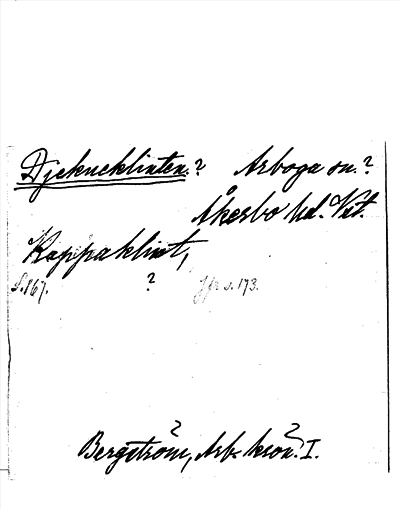 Djekneklinten.? Arboga sn.?
Åkerbo hd. Vstm.
Kappaklint,
S. 167. ? Jfr s. 173.
Bergström, Arb. krön. I.
? ?